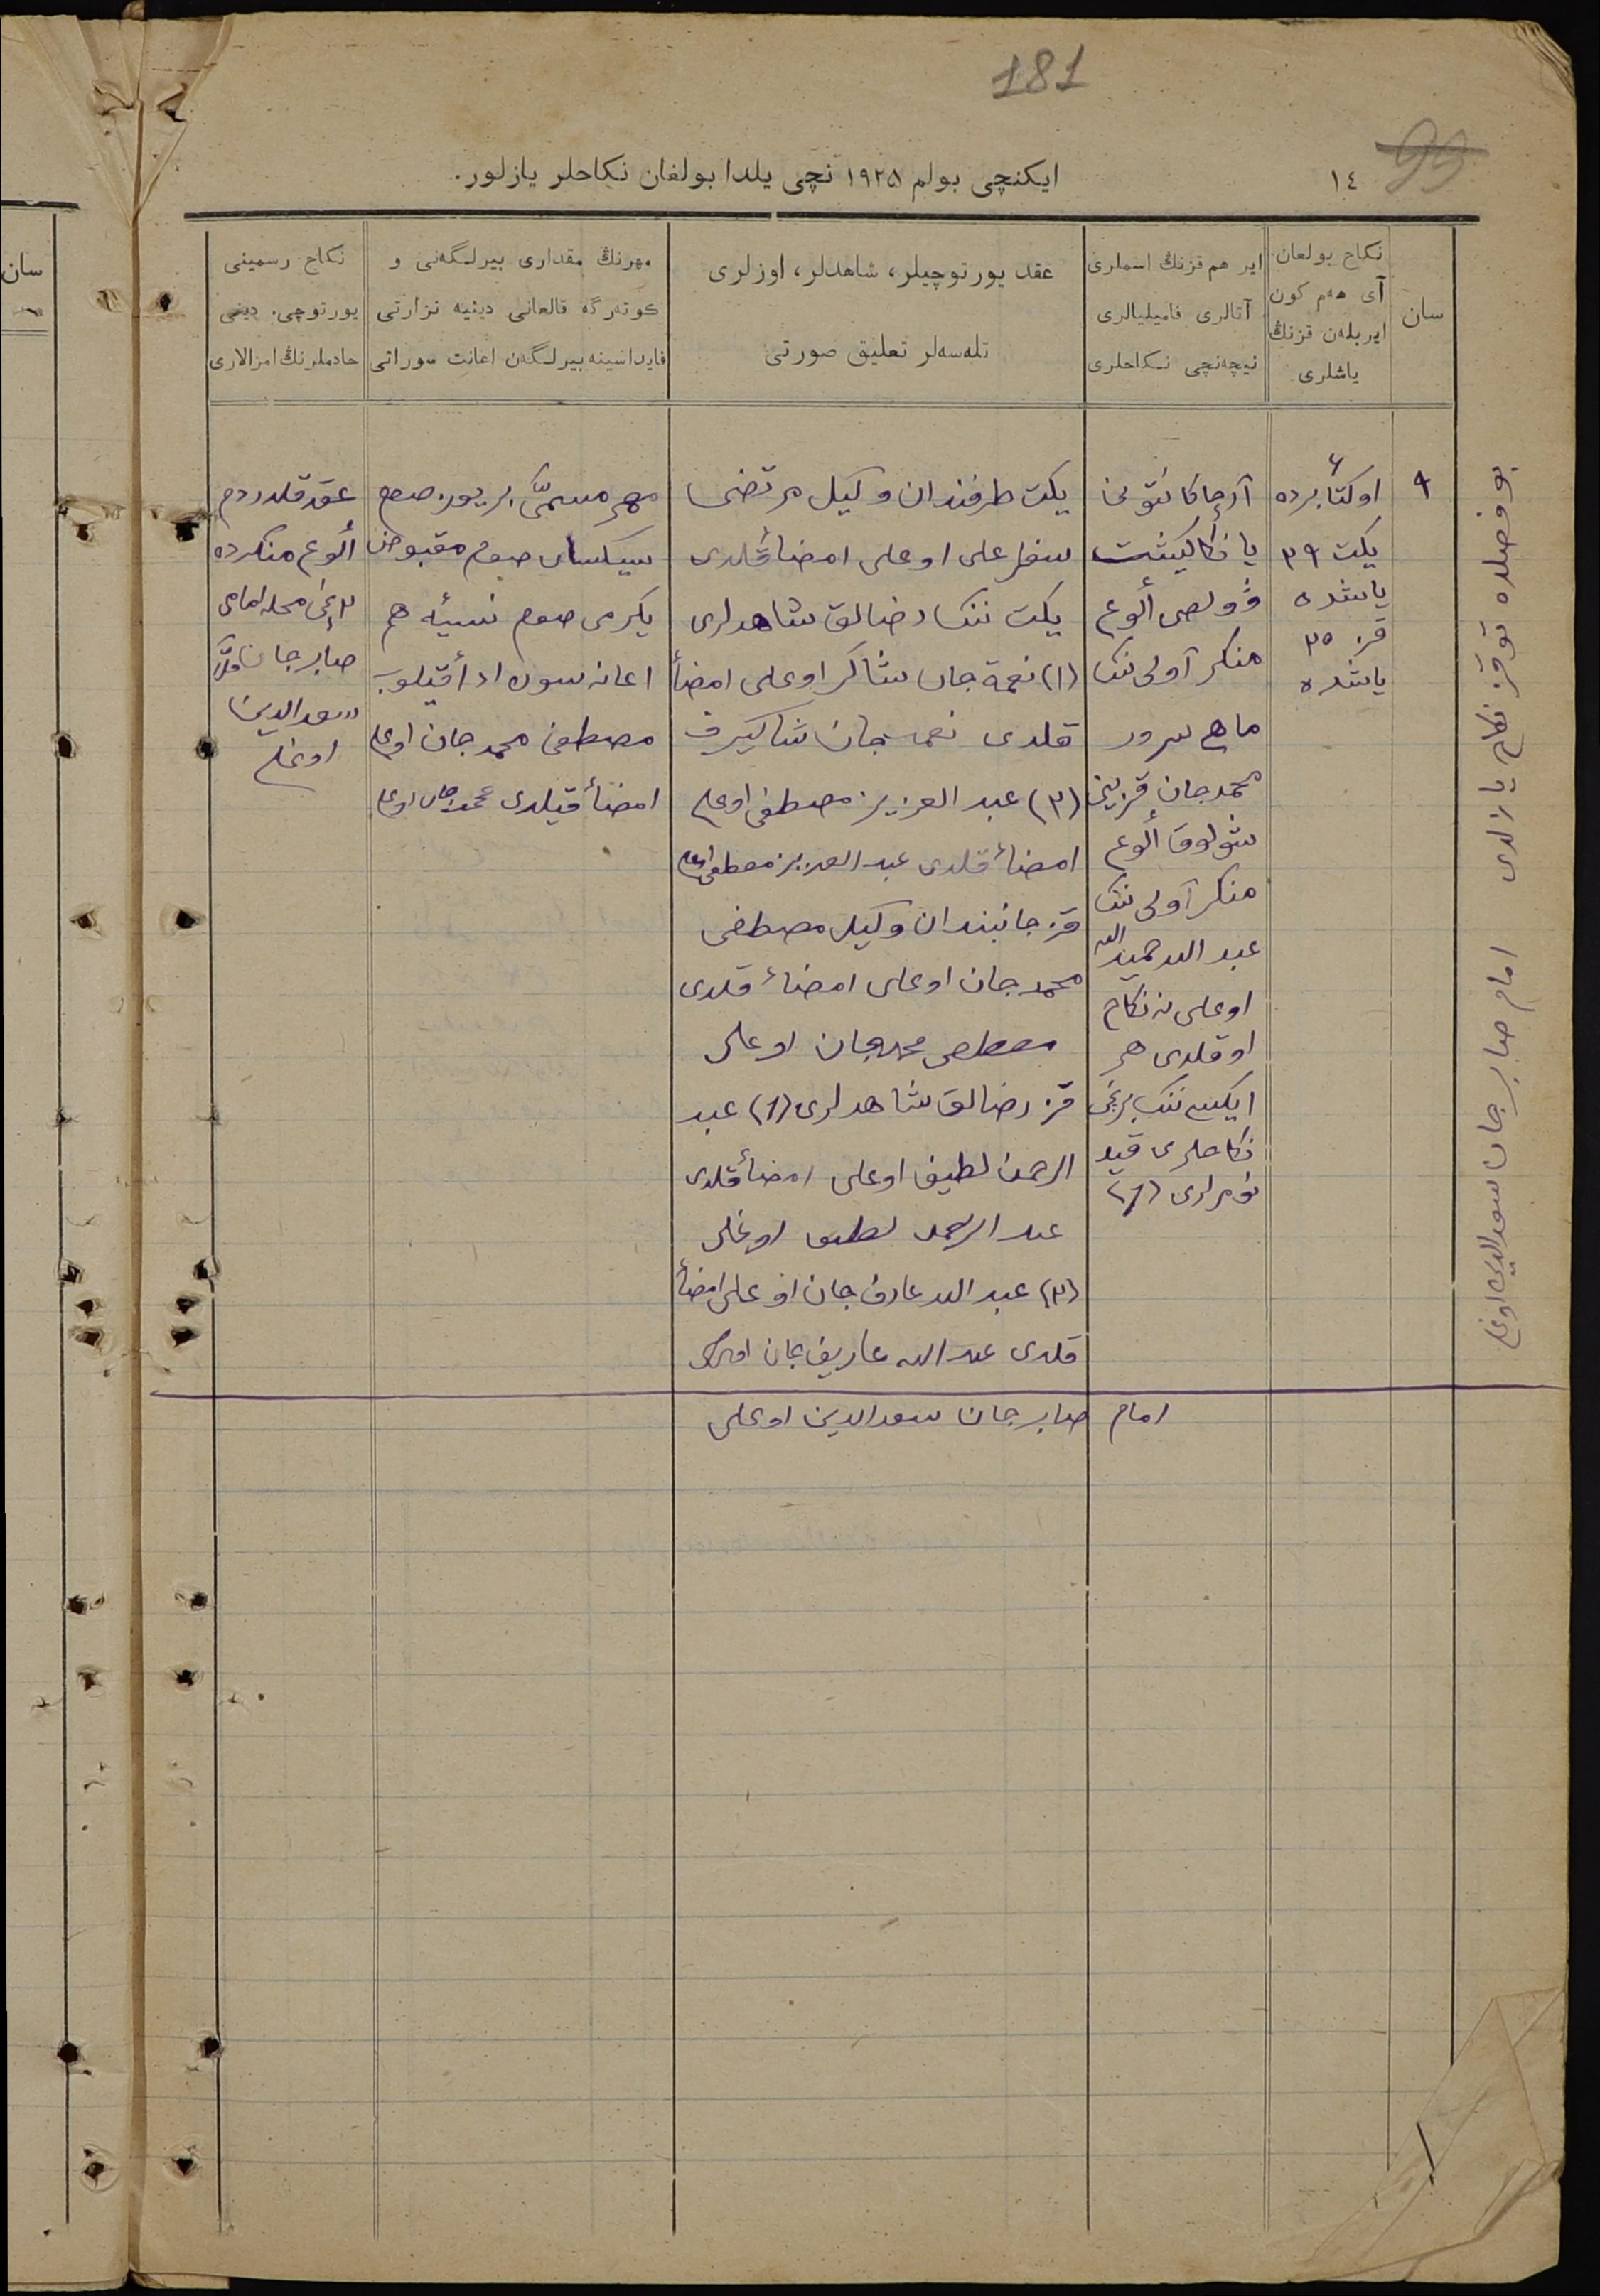 181
99
١٤
ایکنچی بولم ١٩٢٥ نچی یلدا بولغان نکاحلر یازلور.
سان
نکاح بولغان
آی هەم کون
ایر بلەن قزنڭ
یاشلری
ایر هم قزنڭ اسملری
آتالری فامیلیالری
نیچەنچی نکاحلری
عقد یورتوچیلر، شاهدلر، اوزلری
تلەسەلر تعلیق صورتی
مهرنڭ مقداری بیرلگەنی و
کوتەرگە قالغانی دینیه نزارتی
فایداسینه بیرلگەن اعانت سوراتی
نکاح رسمینی
یورتوچی. دینی
خادملرنڭ امزالاری
سان
٩
٤
اوکتابرده
یکت ٣٩
یاشده
قز ٣٥
یاشده
آرچا کانتونی
یاڭا کیشت
ولصی ألوغ
منگر آولی ننک
ماه سرور
محمدجان قزینی
شولوق ألوغ
منگر آولی ننک
عبد الله حمید الله
اوغلی نه نکاح
اوقلدی هر
ایکیسی ننک برنچی
نکاحلری قید
نومرلری (1)
یکت طرفندان وکیل مرتضی
سفرعلی اوغلی امضاء قلدی
یکت ننک رضالق شاهدلری
(١) نعمة جان شاکر اوغلی امضاء
قلدی نعمت جان شاکیرف
(٢) عبد العزیز مصطفی اوغلی
امضاء قلدی عبد العزیز مصطفی اوغلی
قز جانبندان وکیل مصطفی
محمد جان اوغلی امضاء قلدی
مصطفی محمد جان اوغلی
قز رضالق شاهدلری (1) عبد
الرحمن لطیف اوغلی امضاء قلدی
عبد الرحمن لطیف اوغلی
(٢) عبد الله عارف جان اوغلی امضاء
قلدی عبد الله عاریف جان
مهر مسمّی بر یوز صوم
سیکسان صوم مقبوض
یکرمی صوم نسیئه هم
اعانه سون ادا قیلوب
مصطفی محمد جان اوغلی
امضاء قیلدی محمد جان اوغلی
عقد قلدردم
ألوغ منگرده
٢ نچی محله امامی
صابر جان ملا
سعد الدین
اوغلی
امام صابر جان سعد الدین اوغلی
بو فصلده توقز نکاح یازلدی امام صابر جان سعد الدین اوغلی